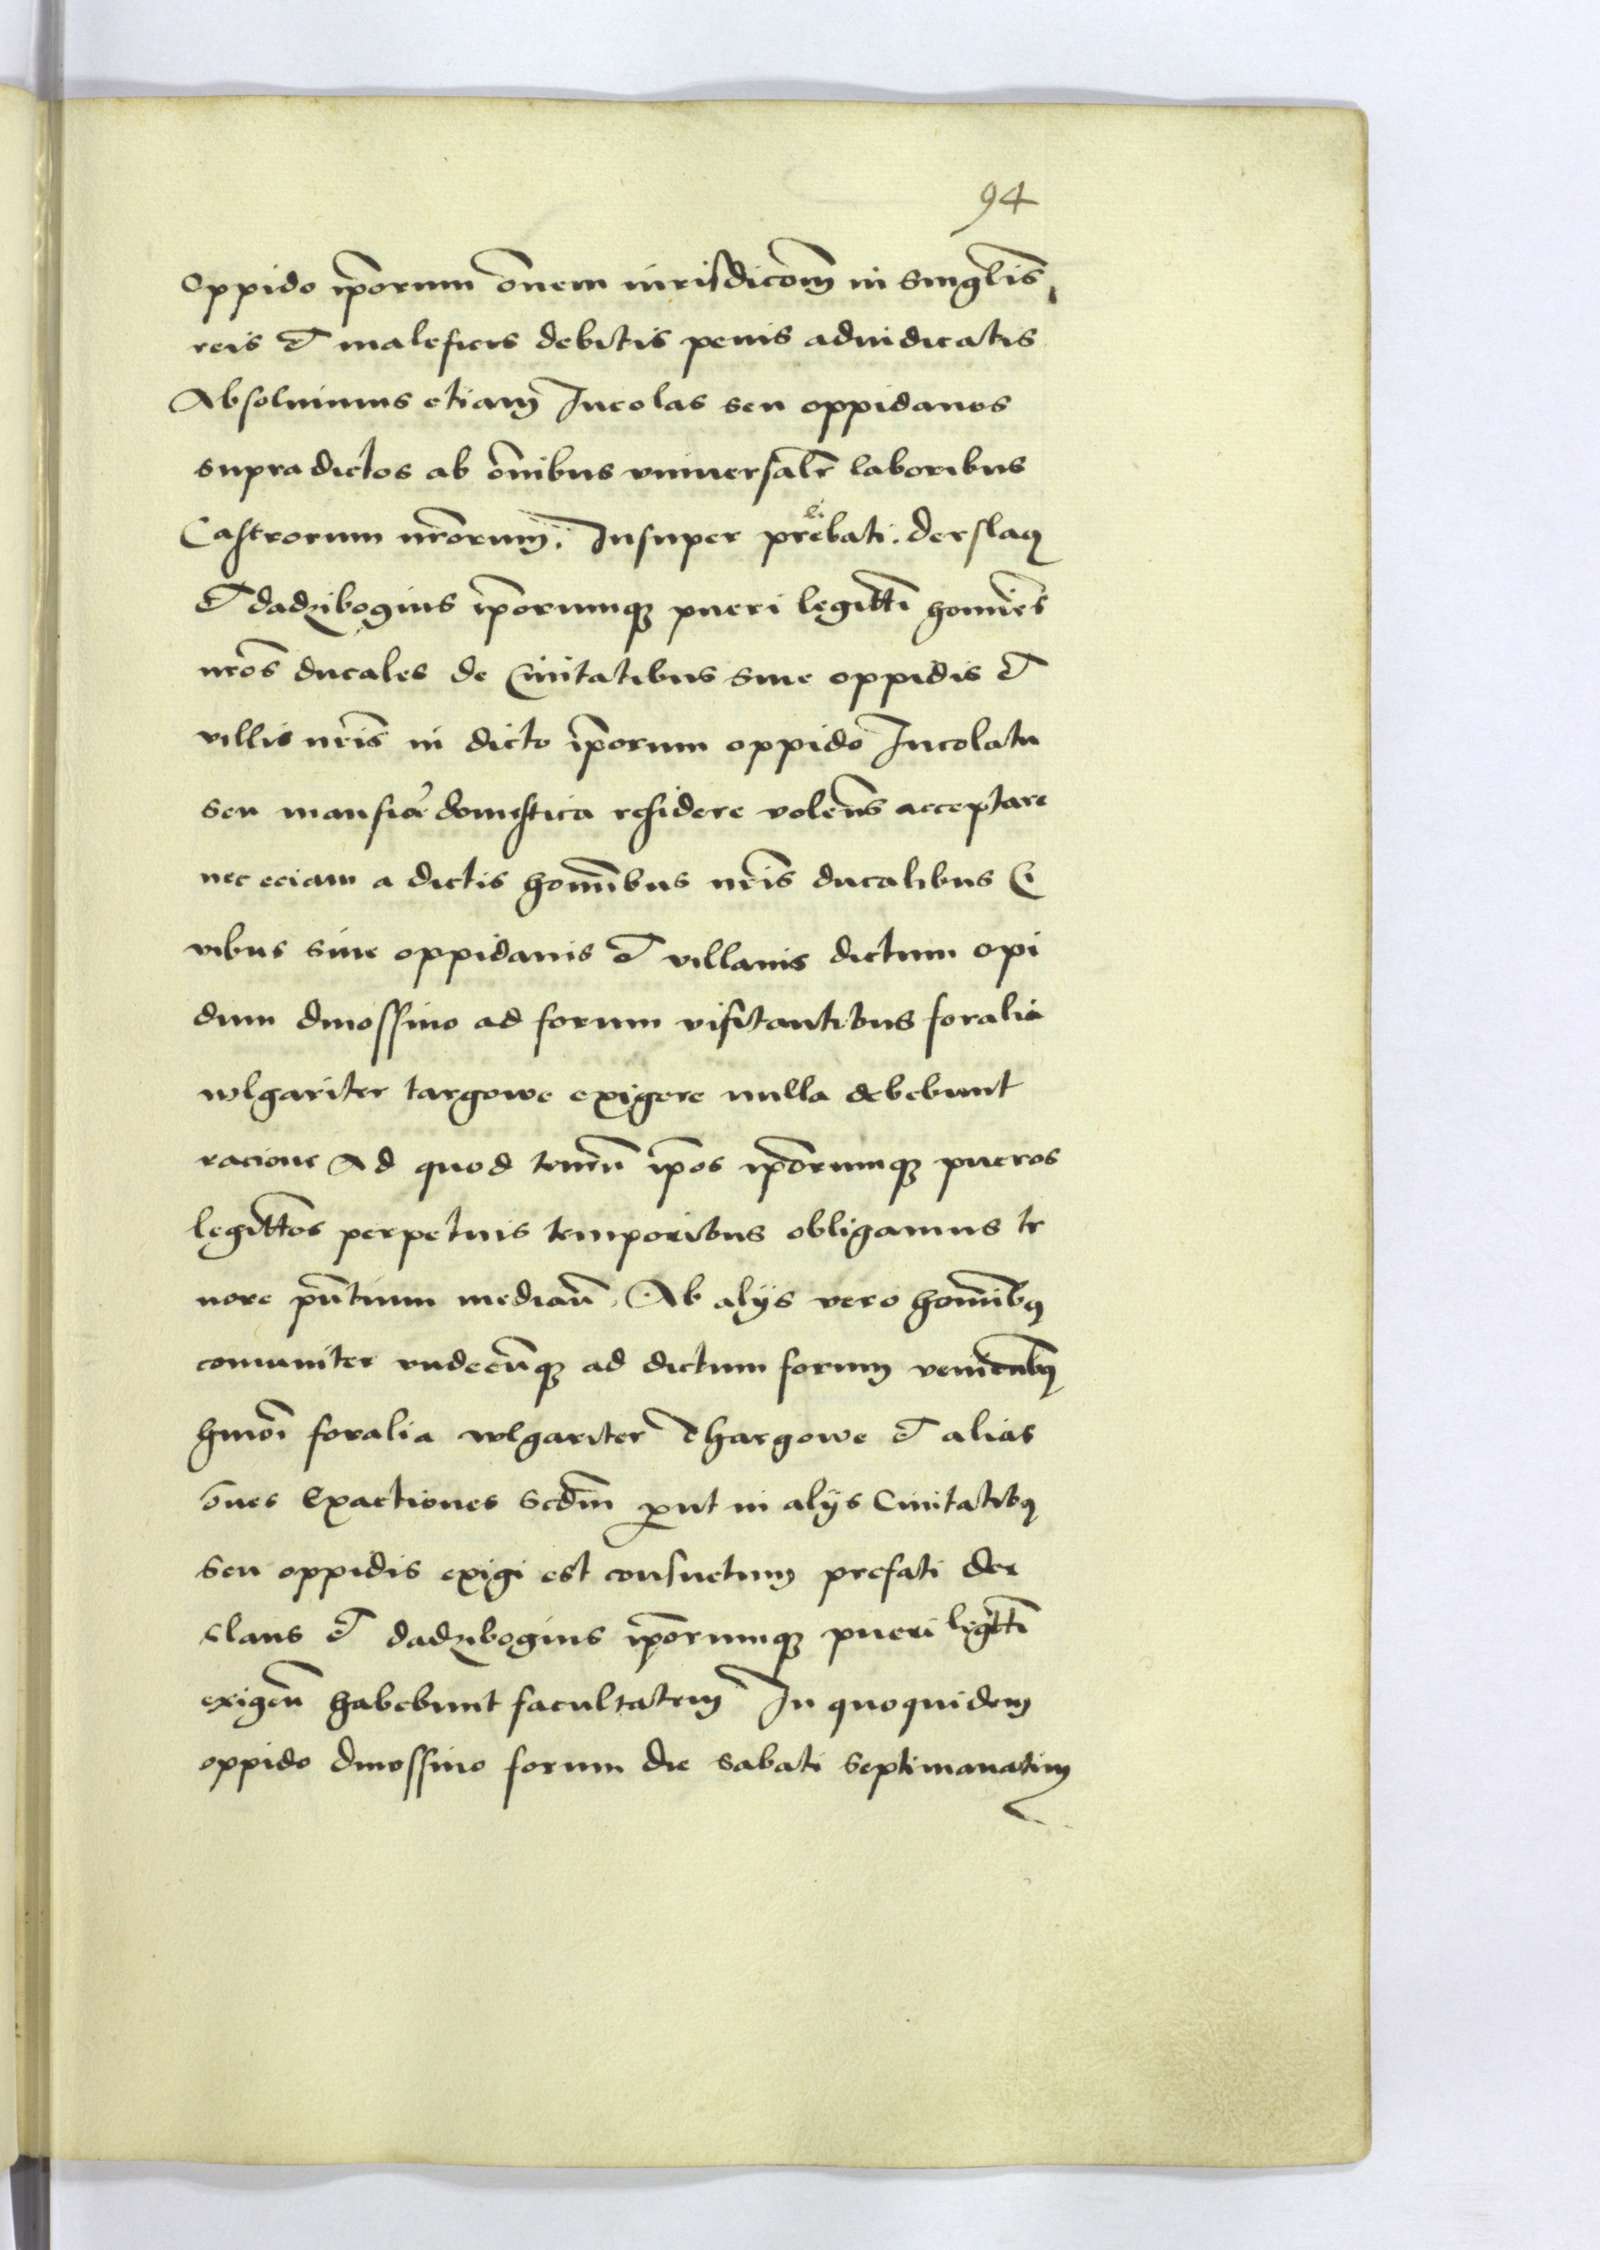 94
oppido ip̄orum om̄em iurisdicc̄om̄ in singlis̄
reis et maleficis debitis penis adiudicatis
Absoluimus etiam Incolas seu oppidanos
supradictos ab om̄ibus vniuersalr̄ laboribus
Castrorum nr̄orum. Insuper prebati. derslaꝰ
et dadzibogius ip̄orumqꝫ pueri legitt̄i homīes
nr̄os ducales de Ciuitatibus siue oppidis et
villis nr̄is in dicto ip̄orum oppido Incolatu
seu domestica residere volen̄s acceptare
nec eciam a dictis homībus nr̄is ducalibus Ci
uibus siue oppidanis et villanis dictum opi
dum dmossino ad forum visitantibus foralia
wlgariter targowe exigere nulla debebunt
racione Ad quod tenen̄ ip̄os ip̄orumqꝫ pueros
legitt̄os perpetuis temporibus obligamus te
nore pn̄tium median̄. Ab alijs vero homībꝰ
comuniter vndecūqꝫ ad dictum forum venientibꝰ
hmōi foralia wlgariter thargowe et alias
om̄es exactiones scdm̄ ꝓut in alijs Ciuitatibꝰ
seu oppidis exigi est consuetum prefati der
slaus et dadzibogius ip̄orumqꝫ pueri legitt̄i
exigen̄ habebunt facultatem In quoquidem
oppido dmossino forum die sabati septimanatim